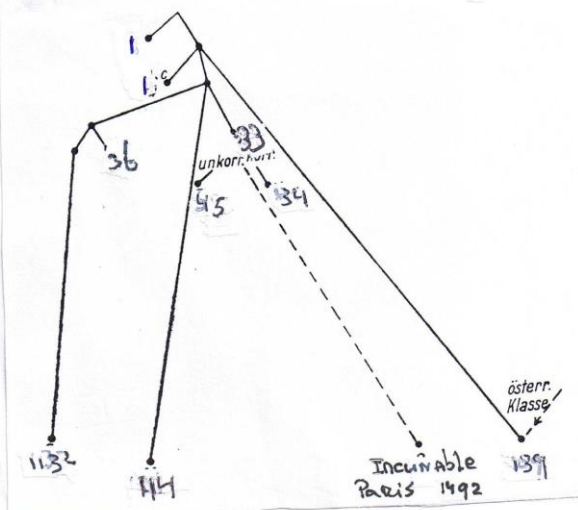 1
c
33
36
unkorr.
korr.
45
34
österr.
Klasse
1132
114
139
Incunable
Paris 1492